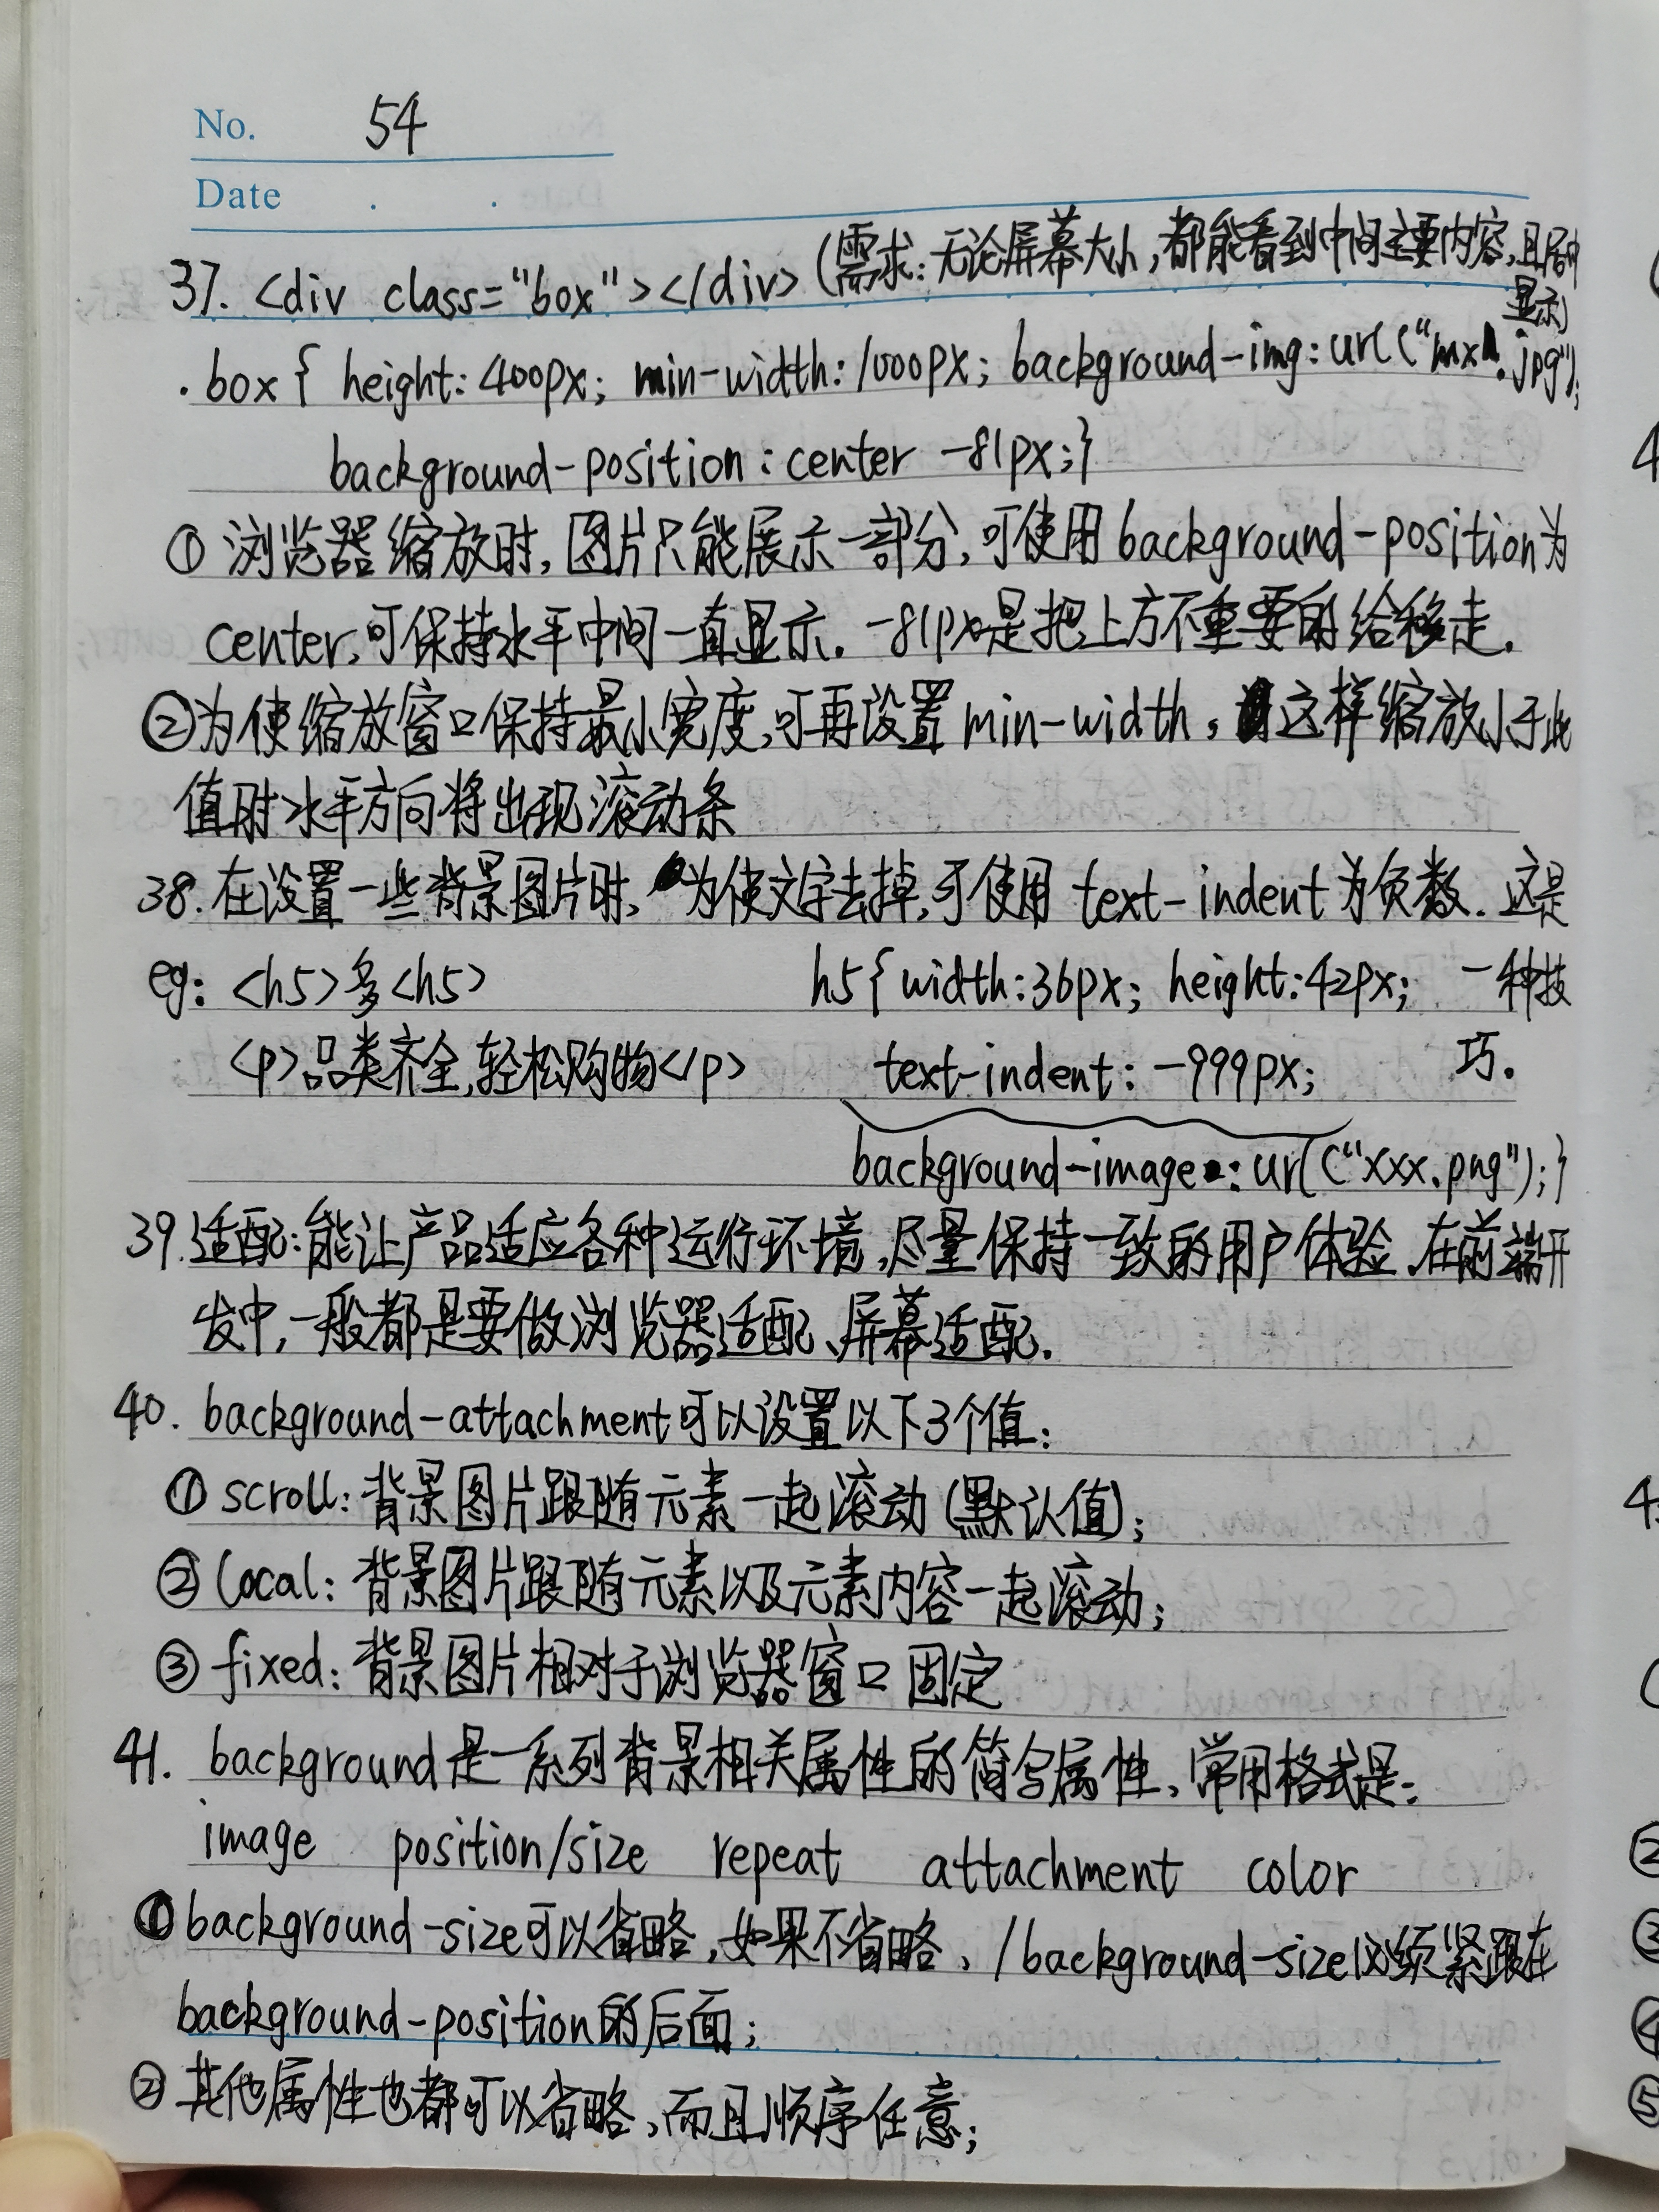 No. 54
Date . .
37. <div class="box"></div> (需求:无论屏幕大小,都能看到中间主要内容,且居中
显示)
.box { height: 400px; min-width: 1000px; background-img: url("mx.jpg");
background-position: center -81px;}
① 浏览器缩放时,图片只能展示一部分,可使用background-position为
center,可保持水平中间一直显示. -81px是把上方不重要的给移走.
②为使缩放窗口保持最小宽度,可再设置min-width,这样缩放小于此
值时水平方向将出现滚动条
38. 在设置一些背景图片时,为使文字去掉,可使用 text-indent为负数. 这是
eg: <h5>多<h5> h5{ width:36px; height:42px; 一种技
<p>品类齐全,轻松购物</p> text-indent: -999px; 巧.
background-image: url("xxx.png");}
39.适配:能让产品适应各种运行环境,尽量保持一致的用户体验、在前端开
发中,一般都是要做浏览器适配、屏幕适配.
40. background-attachment可以设置以下3个值:
① scroll: 背景图片跟随元素一起滚动 (默认值);
② local: 背景图片跟随元素以及元素内容一起滚动;
③ fixed: 背景图片相对于浏览器窗口固定
41. background是一系列背景相关属性的简写属性、常用格式是:
image position/size repeat attachment color
①background-size可以省略,如果不省略、/background-size必须紧跟在
background-position的后面;
② 其他属性也都可以省略,而且顺序任意;